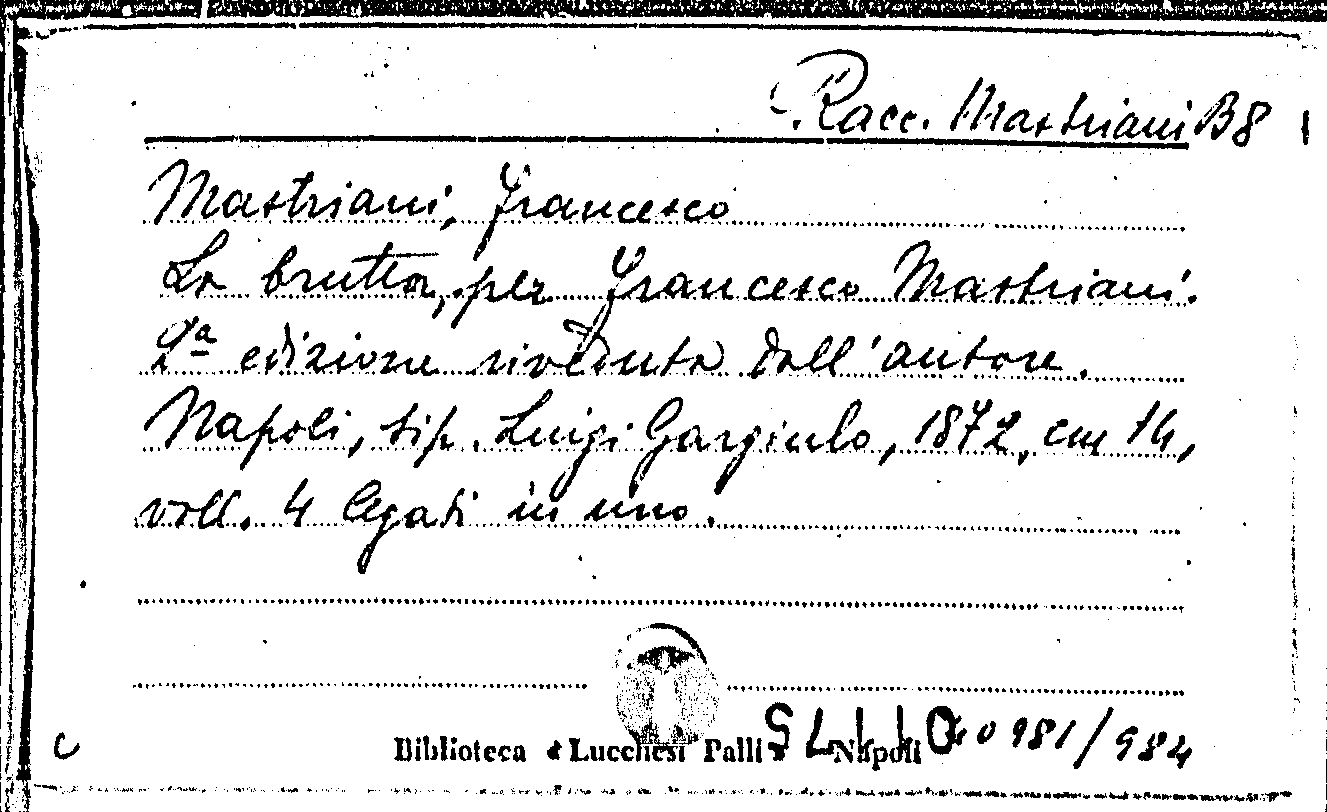 Racc. Mastriani B8
Mastriani, Francesco
La brutta, per Francesco Mastriani.
2ª edizione riveduta dall'autore.
Napoli, tip. Luigi Gargiulo, 1872, cm 14,
voll. 4 legati in uno.
Biblioteca « Lucchesi Palli » Napoli
981/984